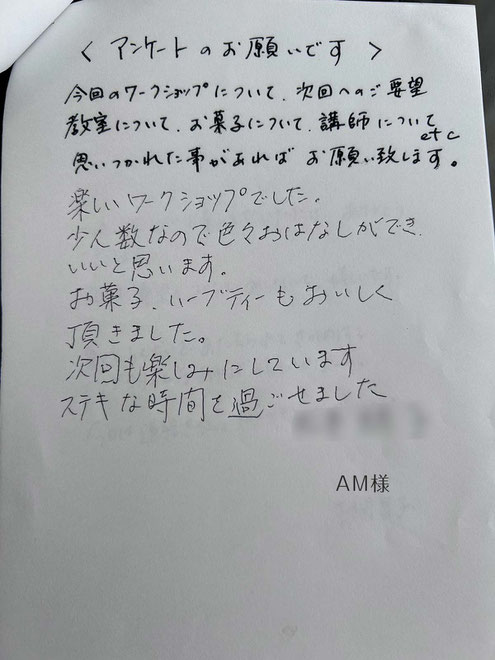 < アンケートのお願いです >
今回のワークショップについて、次回へのご要望
教室について、お菓子について、講師について
etc
思いつかれた事があればお願い致します。
楽しいワークショップでした。
少人数なので色々おはなしができ、
いいと思います。
お菓子、ハーブティーもおいしく
頂きました。
次回も楽しみにしています
ステキな時間を過ごせました
AM様